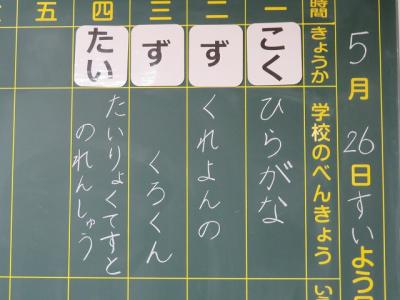 5月26日すいよう
時間
きょうか
学校のべんきょう
一
こく
ひらがな
二
ず
くれよんの
三
ず
くろくん
四
たい
たいりょくてすと
のれんしゅう
五